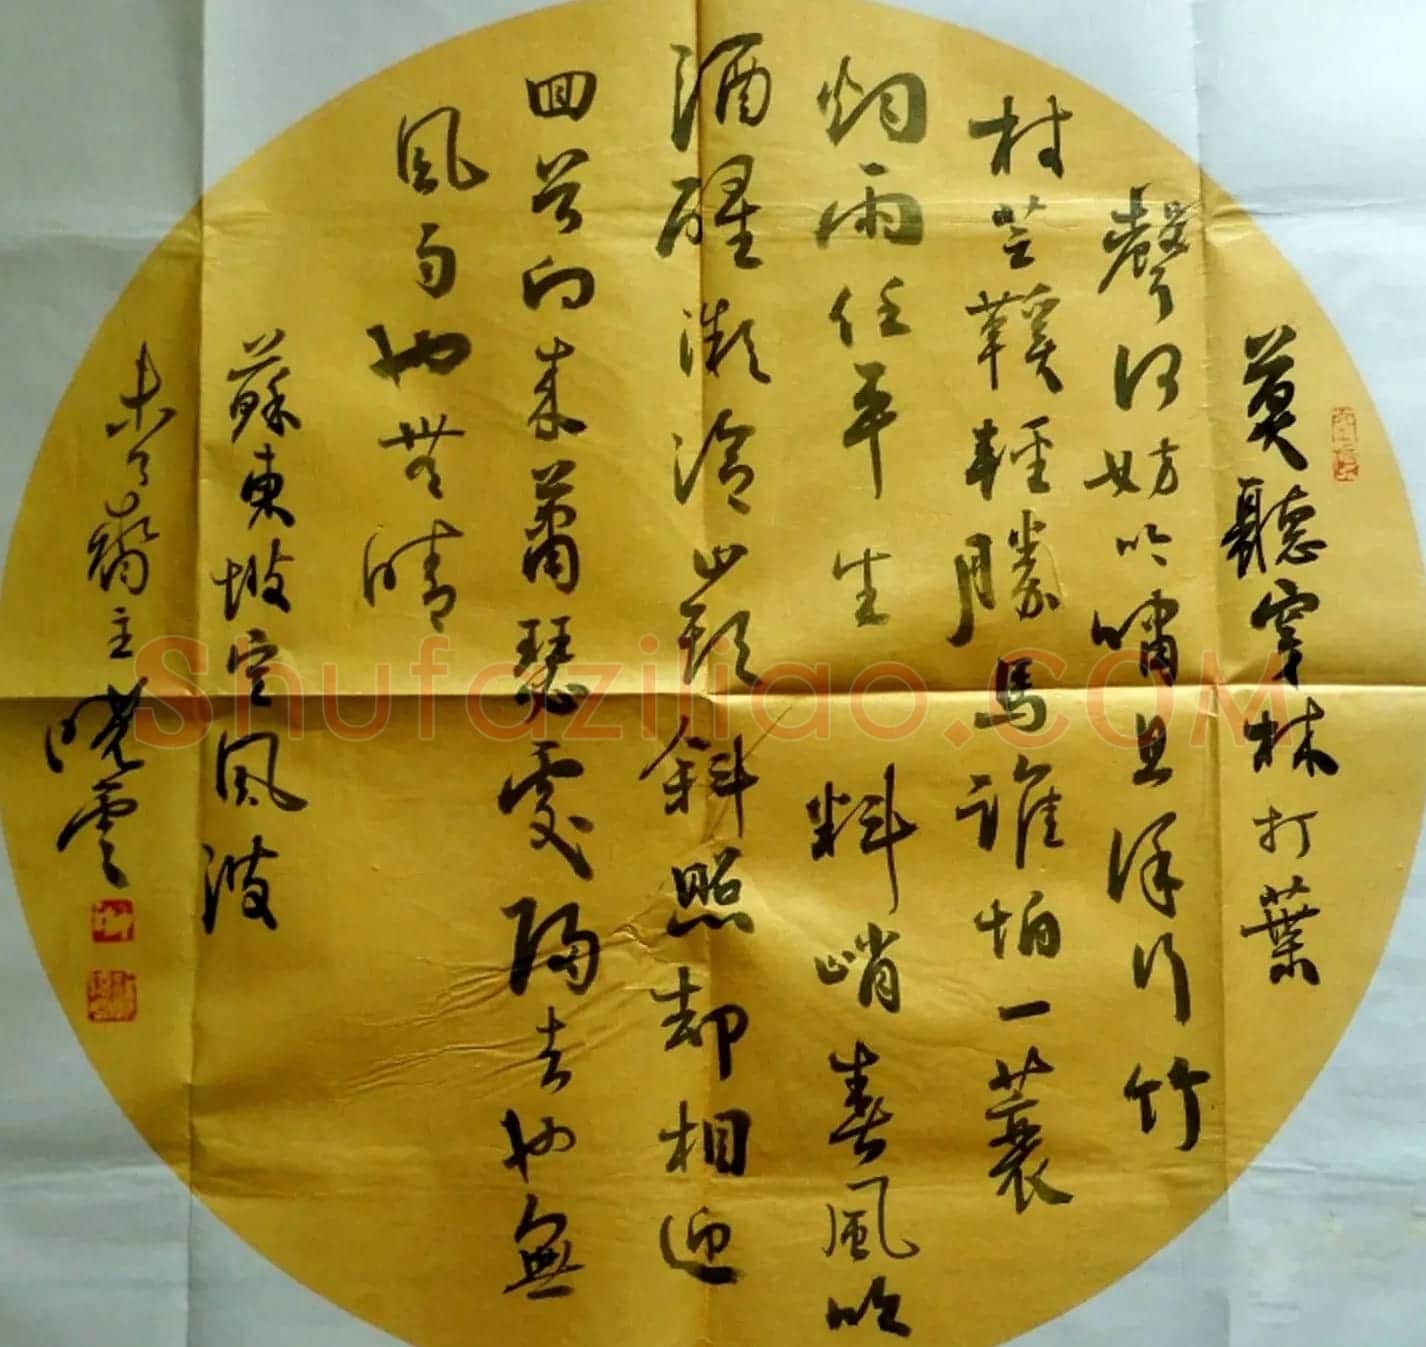 莫聽穿林打葉
聲何妨吟嘯且徐行竹
杖芒鞵輕勝馬誰怕一蓑
烟雨任平生料峭春風吹
酒醒微冷山頭斜照却相迎
回首向来蕭瑟處歸去也無
風雨也無晴
蘇東坡定風波
齋主曉雲
Shufaziliao.COM